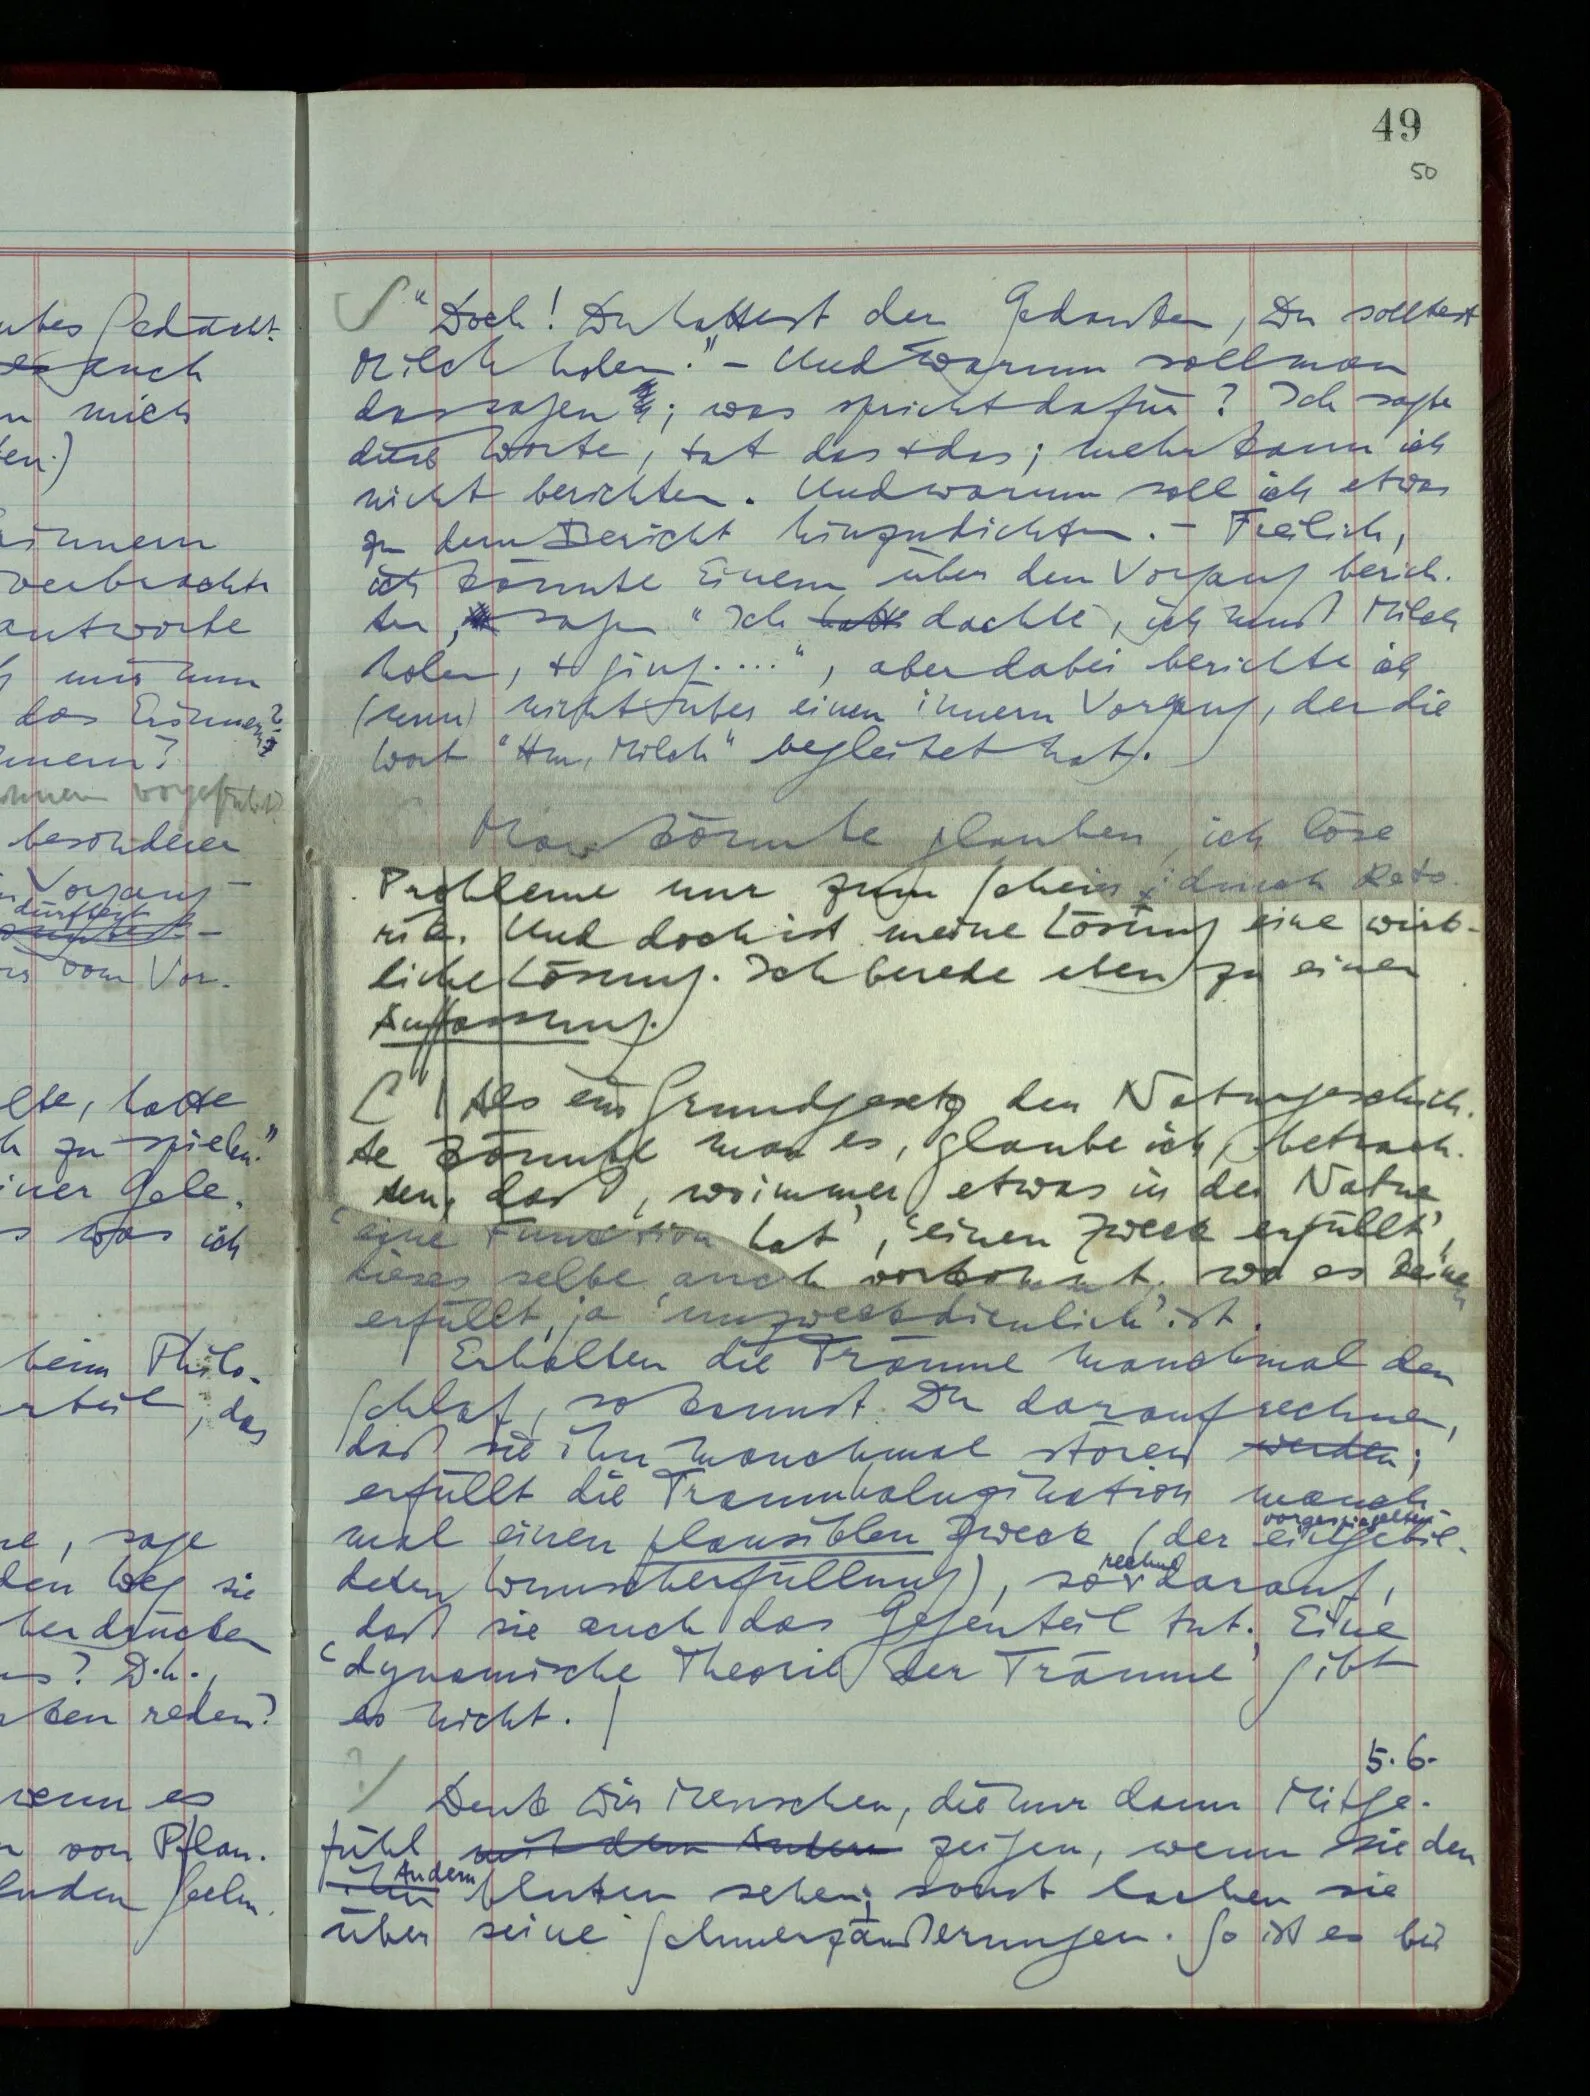 utes Gedächt-
es auch
n mich
en.)
innern
verbrachte
antworte
mir nun
das Erinnern?
nnern?
vorgeführt?
besonderer
Vorgang –
dürftest
vom Vor-
lte, hatte
zu spielen."
iner Gele-
s was ich
beim Philo-
rteil, das
ne, sage
den Weg sie
her drücken
us? D.h.,
rten reden?
wenn es
von Pflan-
49
50
"Doch! Du hattest den Gedanken, Du solltest
Milch holen." – Und warum soll man
das sagen; was spricht dafür? Ich sagte
diese Worte, tat das + das; mehr kann ich
nicht berichten. Und warum soll ich etwas
zu dem Bericht hinzudichten. – Freilich,
ich könnte Einem über den Vorgang berich-
ten, sagen "Ich hatte dachte, ich muß Milch
holen, + ging....", aber dabei berichte ich
(nun) nicht über einen innern Vorgang, der die
Wort "Hm, Milch" begleitet hat.
Man könnte glauben, ich löse
Probleme nur zum Schein; durch Reto-
rik. Und doch ist meine Lösung eine wirk-
liche Lösung. Ich berede eben zu einer
Auffassung.
Als ein Grundgesetz der Naturgeschich-
te könnte man es, glaube ich, betrach-
ten, daß, wo immer etwas in der Natur
'eine Funktion hat', 'einen Zweck erfüllt',
dieses selbe auch vorkommt, wo es keinen
erfüllt, ja 'unzweckdienlich' ist.
Erhalten die Träume manchmal den
Schlaf, so kannst Du darauf rechnen,
daß sie ihn manchmal stören werden;
erfüllt die Traumhaluzination manch-
mal einen plausiblen Zweck (der eingebil-
vorgespiegelten
deten Wunscherfüllung), so rechne darauf,
daß sie auch das Gegenteil tut. Eine
'dynamische Theorie der Träume' gibt
es nicht.
5.6.
?/
Denk Dir Menschen, die nur dann Mitge-
fühl mit dem Andern zeigen, wenn sie den
ihn Andern bluten sehen; sonst lachen sie
über seine Schmerzäußerungen. So ist es bei